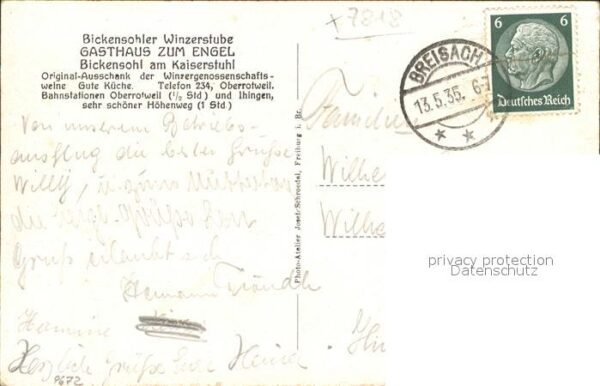 Bickensohler Winzerstube
GASTHAUS ZUM ENGEL
Bickensohl am Kaiserstuhl
Original-Ausschank der Winzergenossenschafts-
weine Gute Küche. Telefon 234, Oberrotweil.
Bahnstationen Oberrotweil (½ Std) und Ihingen,
sehr schöner Höhenweg (1 Std)
x 7818
BREISACH
13.5.35. 6-7
6 6
Deutsches Reich
Von unserem Betriebs-
ausflug die besten Grüße
Willy,
die
Gruß erlaubt sich
Hermann Tröndle
Herzliche Grüße
9672
Photo-Atelier Josef Schroedel, Freiburg i. Br.
Familie
Wilhe
Wilhe
privacy protection
Datenschutz